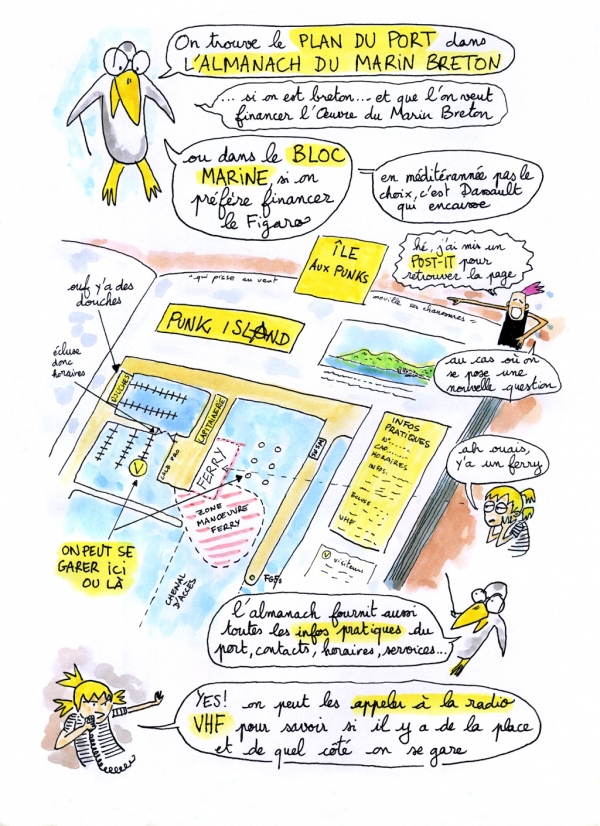 On trouve le PLAN DU PORT dans
L'ALMANACH DU MARIN BRETON
... si on est breton... et que l'on veut
financer l'Œuvre du Marin Breton
ou dans le BLOC
MARINE, si on
préfère financer
le Figaro
en méditérannée pas le
choix, c'est Dassault
qui encaisse
ÎLE
AUX PUNKS
hé, j'ai mis un
POST-IT pour
retrouver la page
"qui pisse au vent
mouille ses charentaises"
ouf y'a des
douches
PUNK ISLAND
écluse
donc
horaires
au cas où on
se pose une
nouvelle question
DOUCHES
CAPITAINERIE
INFOS
PRATIQUES
N°
CAP
HORAIRES
INFOS
ECLUSE
VHF
FERRY
V
ah ouais,
y'a un ferry
ZONE
MANOEUVRE
FERRY
ON PEUT SE
GARER ici
OU LÀ
CHENAL
D'ACCÈS
V visiteurs
l'almanach fournit aussi
toutes les infos pratiques du
port, contacts, horaires, services...
YES! on peut les appeler à la radio
VHF pour savoir si il y a de la place
et de quel côté on se gare